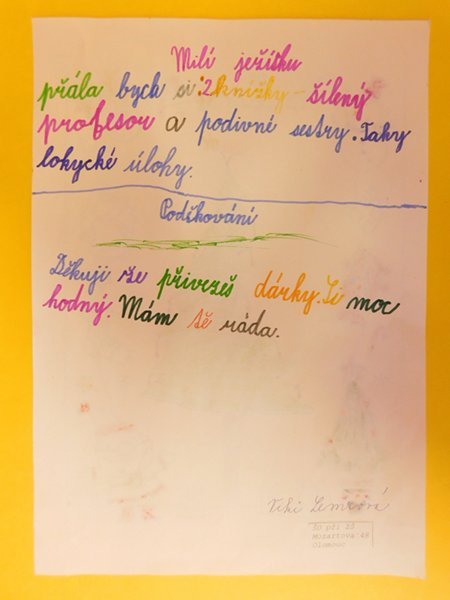 Milí ježíšku
přála bych si :2 knížky - šílený
profesor a podivné sestry. Taky
lokycké úlohy.
Poďkování
Děkuji že přivezeš dárky. Si moc
hodný. Mám tě ráda.
Viki
ŠD při ZŠ
Mozartova 48
Olomouc